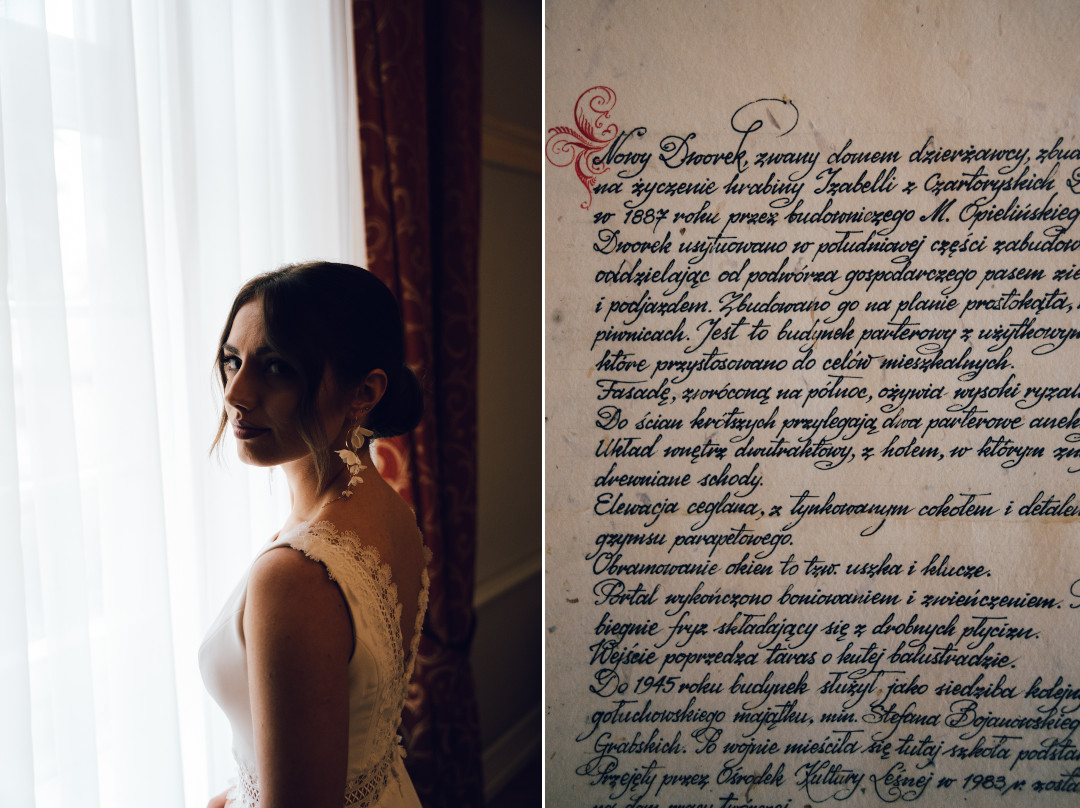 Nowy Dworek, zwany domem dzierżawcy, zbud
na życzenie hrabiny Izabelli z Czartoryskich D
w 1887 roku przez budowniczego M. Opielińskieg
Dworek usytuowano w południowej części zabudow
oddzielając od podwórza gospodarczego pasem zie
i podjazdem. Zbudowano go na planie prostokąta,
piwnicach. Jest to budynek parterowy z użytkowym
które przystosowano do celów mieszkalnych.
Fasadę, zwróconą na północ, ożywia wysoki ryzali
Do ścian krótszych przylegają dwa parterowe anek
Układ wnętrz dwutraktowy, z holem, w którym zn
drewniane schody.
Elewacja ceglana, z tynkowanym cokołem i detalem
gzymsu parapetowego.
Obramowanie okien to tzw. uszka i klucze.
Portal wykończono boniowaniem i zwieńczeniem.
biegnie fryz składający się z drobnych płycizn.
Wejście poprzedza taras o kutej balustradzie.
Do 1945 roku budynek służył jako siedziba kolejn
gołuchowskiego majątku, min. Stefana Bojanowskieg
Grabskich. Po wojnie mieściła się tutaj szkoła podsta
Przejęty przez Ośrodek Kultury Leśnej w 1983 r. zosta
na dom pracy twórczej.